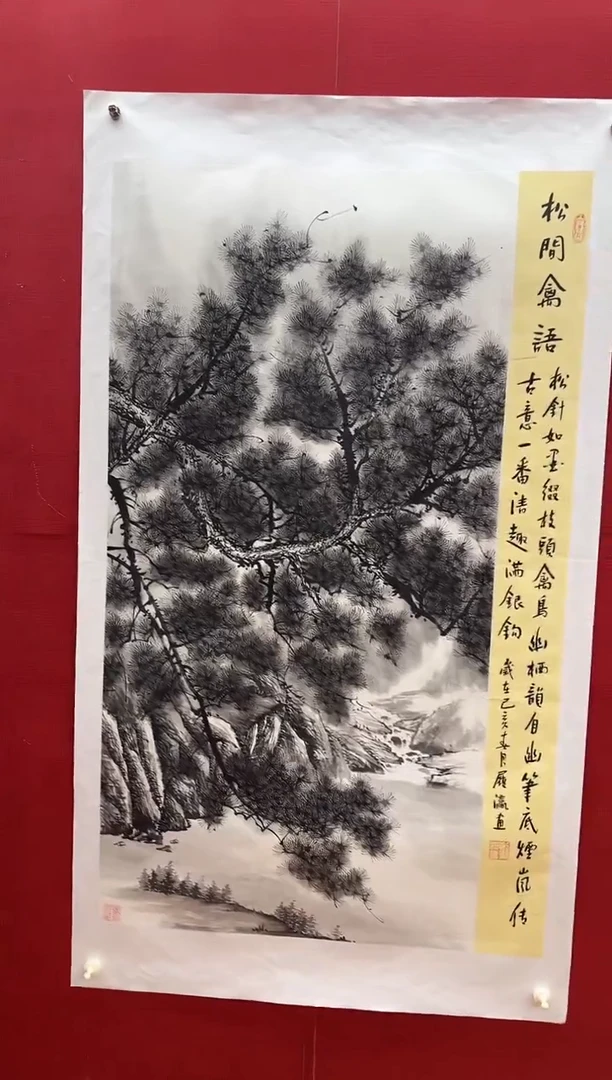 松間禽語
松針如墨綴枝頭禽鳥幽栖韻自幽筆底煙嵐传
古意一番清趣满銀鈎
歲在己亥
月
画